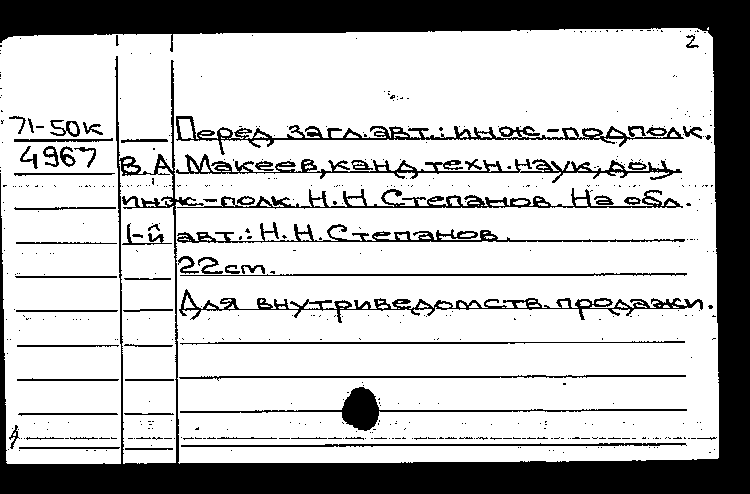 2
71-50к Перед загл. авт.: инж.-подполк.
4967 В. А. Макеев, канд. техн. наук, доц.
инж.-полк. Н. Н. Степанов. На обл.
1-й авт.: Н. Н. Степанов.
22 cm.
Для внутриведомств. продажи.